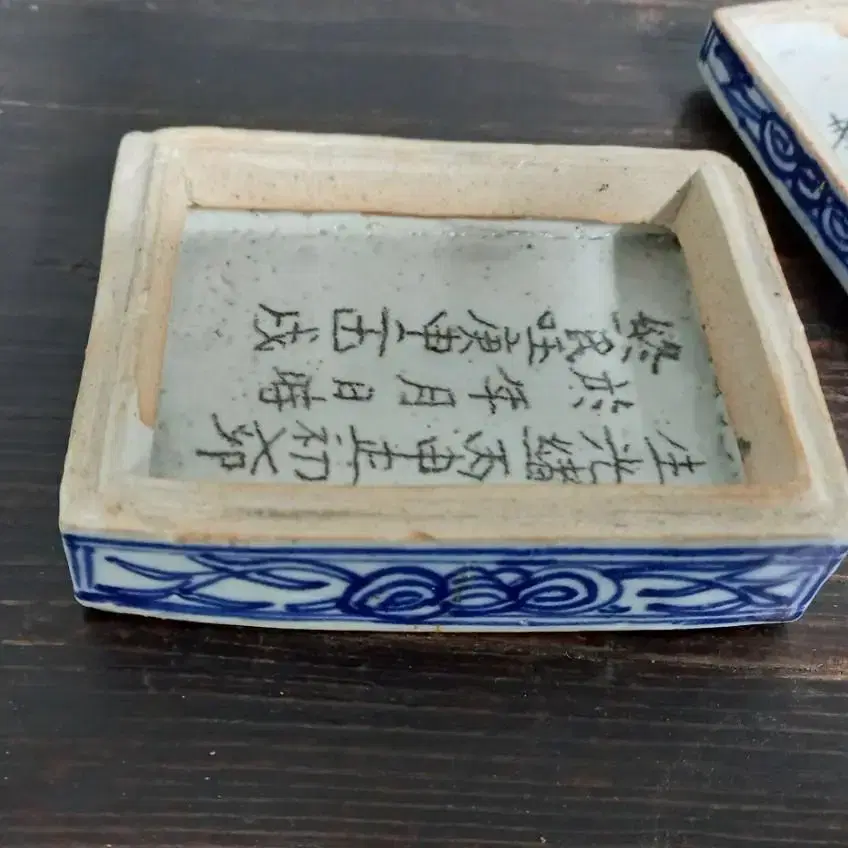 終民国庚申二戌
於年月日時
生光緒丙申正初卯